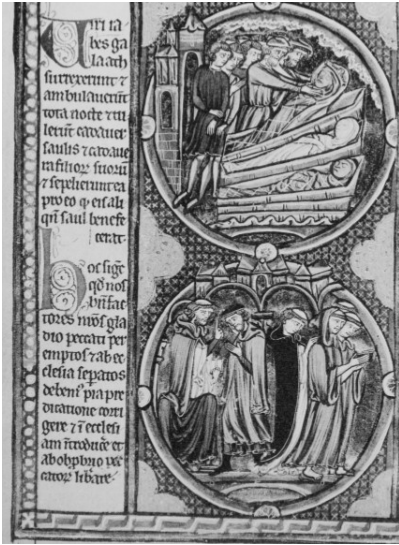 Uiri ia
bes ga
laath
surrexerunt &
ambulauerunt
tota nocte & tu
lerunt cadauer
saulis & cadaue
ra filiorum suorum
& sepelierunt ea
pro eo q eis ali
qn saul benefe
cerat.
Hoc sige
qd nos
bnfac
tores nros gla
dio peccati per
emptos & ab ec
clesia separatos
debem pia pre
dicatione corri
gere & in ecclesi
am introducere et
ab obprbrio pec
catorum liberare.